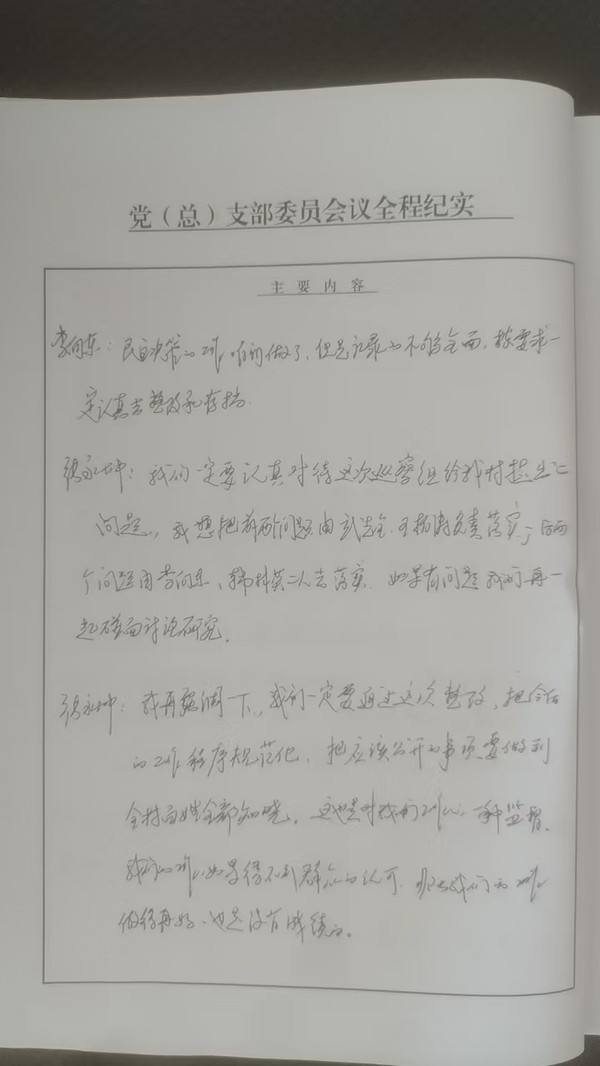 党（总）支部委员会议全程纪实
主要内容
李向东：民主决策的工作咱们做了，但是记录的不够全面，按要求一
定认真去整改和存档.
张永中：我们一定要认真对待这次巡察组给我村提出的
问题，我想把前两个问题由 负责落实；后两
个问题由李向东、韩 英二人去落实. 如果有问题我们再一
起碰面讨论研究.
张永中：我再强调一下，我们一定要通过这次整改，把今后
的工作程序规范化，把应该公开的事项要做到
全村百姓全部知晓，这也是对我们工作的一种监督.
我们的工作如果得不到群众的认可，那么我们的工作
做得再好、也是没有成绩的。